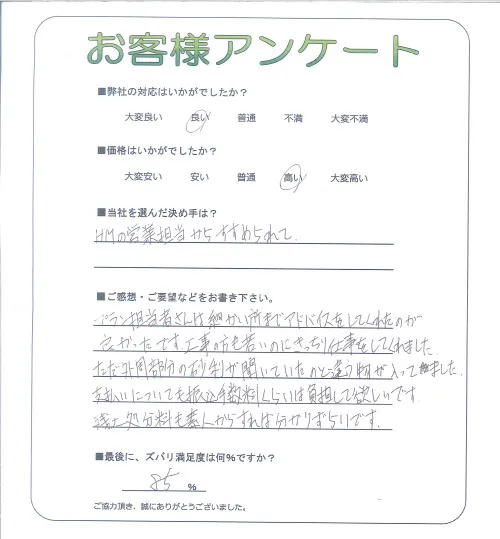 お客様アンケート
■弊社の対応はいかがでしたか?
大変良い 良い 普通 不満 大変不満
■価格はいかがでしたか?
大変安い 安い 普通 高い 大変高い
■当社を選んだ決め手は?
HMの営業担当からすすめられて.
■ご感想・ご要望などをお書き下さい。
プラン担当者さんは細かい所までアドバイスをしてくれたのが
良かったです 工事の方も若いのにきっちり仕事をしてくれました.
ただ外周部分の砂利が聞いていたのと違う物が入って ました.
支払いについても振込手数料くらいは負担して欲しいです.
残土処分料も素人からすれば分かりずらいです.
■最後に、ズバリ満足度は何%ですか?
85 %
ご協力頂き、誠にありがとうございました。